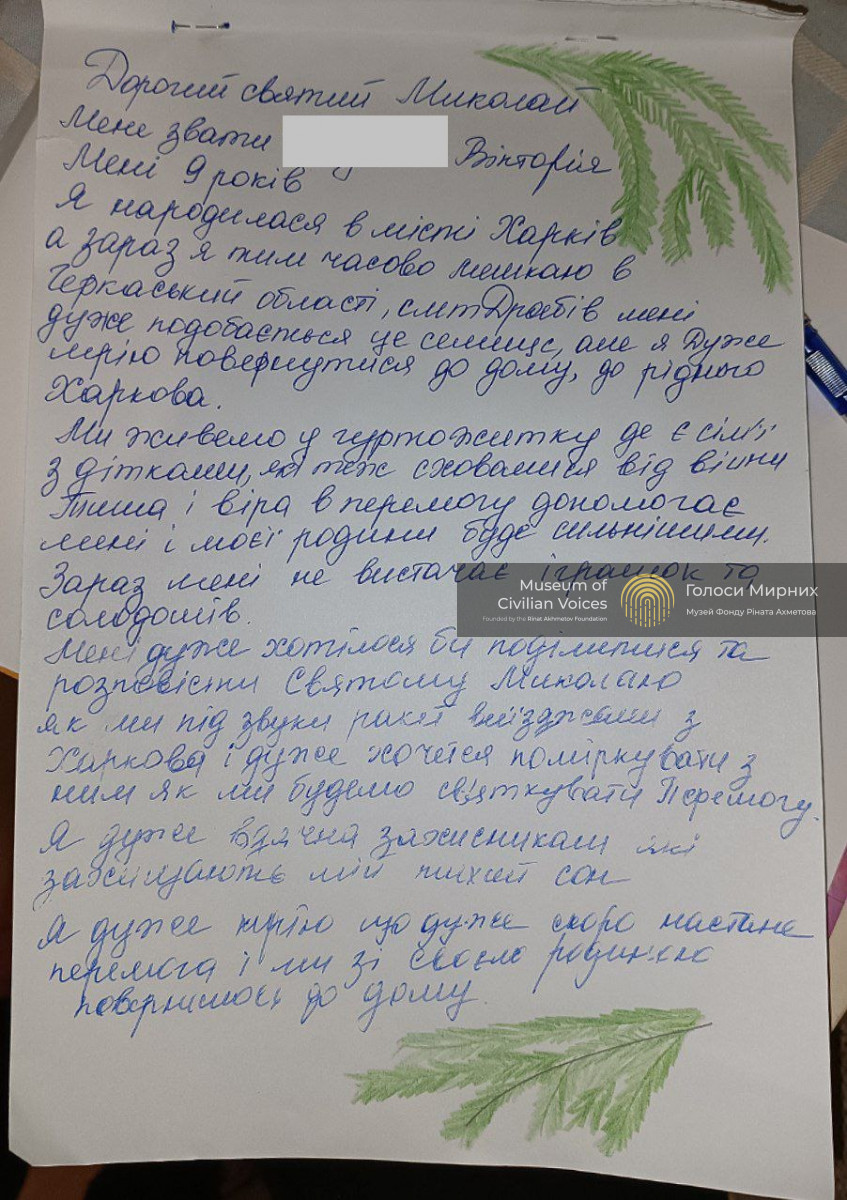 Дорогий святий Миколай
Мене звати Вікторія
Мені 9 років
Я народилася в місті Харків
а зараз я тим часово мешкаю в
Черкаський області, смт Драбів мені
дуже подобається це селище, але я Дуже
мрію повернутися до дому, до рідного
Харкова.
Ми живемо у гуртожитку де є сім'ї
з дітками, які теж сховалися від війни
Тиша і віра в перемогу допомогає
мені і моєї родини буде сильнішими.
Зараз мені не вистачає іграшок та
солодошів.
Museum of
Civilian Voices
Founded by the Rinat Akhmetov Foundation
Голоси Мирних
Музей Фонду Ріната Ахметова
Мені дуже хотілося би поділитися та
розповісти Святому Миколаю
як ми під звуки ракет виїзджали з
Харкова і дуже хочется поміркувати з
ним як ми будемо святкувати Перемогу.
Я дуже вдячна захисникам які
захищають мій тихий сон
Я дуже мрію що дуже скоро настане
перемога і ми зі своєю родиною
повернимось до дому.